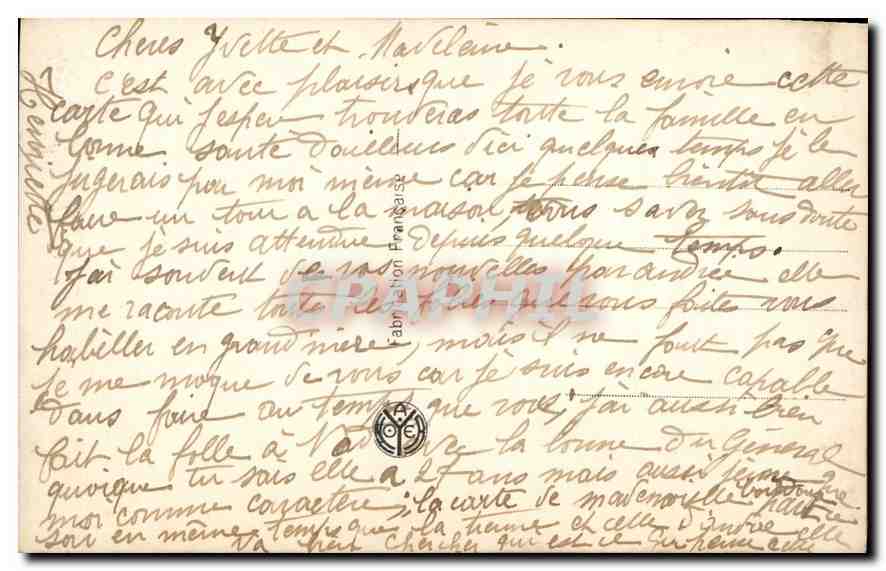 Cheres Yvette et Madeleine.
c'est avec plaisirs que je vous envoie cette
carte qui j'espere trouveras toute la famille en
bonne santé d'ailleurs d'ici quelques temps je le
jugerais par moi même car je pense bientôt aller
faire un tour a la maison, vous savez sans doute
que je suis attendue depuis quelque temps.
j'ai souvent de vos nouvelles par andrée elle
me raconte toutes les folies que vous faites vous
habiller en grand mère, mais il ne faut pas que
je me moque de vous car je suis encore capable
d'ans faire autemps que vous, j'ai aussi bien
fait la folle à la bonne du Général
quoique tu sais elle a 27 ans mais aussi jeune que
moi comme caractère; la carte de mademoiselle partie
soir en même temps que la tienne et celle d'andrée elle
va bien chercher qui est ce qui pense
Henriette
Fabrication Française
CPAPHIL